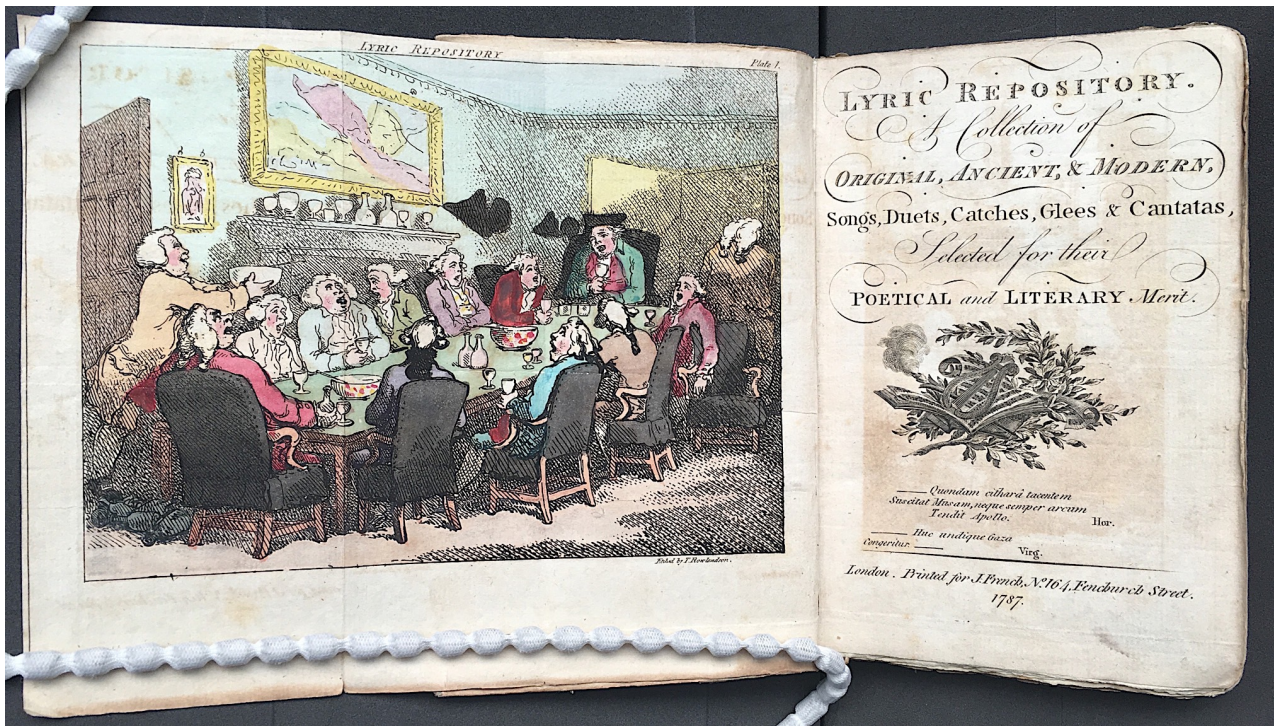 LYRIC REPOSITORY
Plate 1.
Etched by T. Rowlandson.
LYRIC REPOSITORY.
A Collection of
ORIGINAL, ANCIENT, & MODERN,
Songs, Duets, Catches, Glees & Cantatas,
Selected for their
POETICAL and LITERARY Merit.
Quondam citharâ tacentem
Suscitat Musam, neque semper arcum
Tendit Apollo.
Hor.
Huc undique Gaza
Congeritur.
Virg.
London. Printed for J. French, No. 164, Fenchurch Street.
1787.